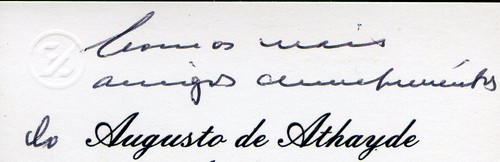 com os mais
amigos cumprimentos
do Augusto de Athayde